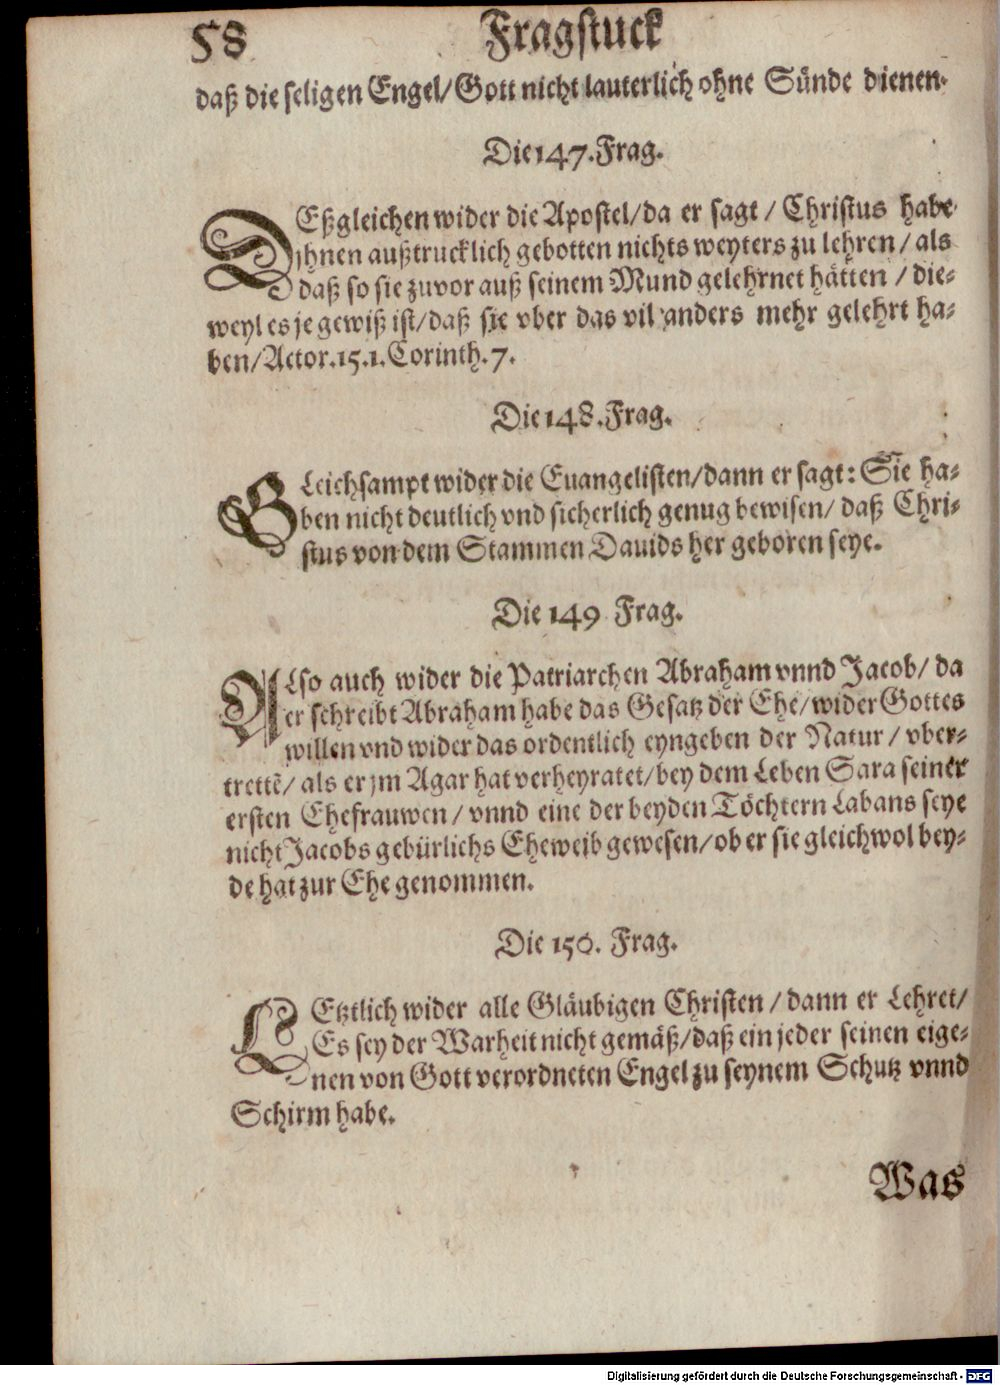 58 Fragstuck
daß die seligen Engel/ Gott nicht lauterlich ohne Sünde dienen.
Die 147. Frag.
DEßgleichen wider die Apostel/ da er sagt / Christus habe
jhnen außtrucklich gebotten nichts weyters zu lehren / als
daß so sie zuvor auß seinem Mund gelehrnet hätten / die-
weyl es je gewiß ist/ daß sie vber das vil anders mehr gelehrt ha-
ben/ Actor. 15. 1. Corinth. 7.
Die 148. Frag.
GLeichsampt wider die Euangelisten/ dann er sagt: Sie ha-
ben nicht deutlich vnd sicherlich genug bewisen/ daß Chri-
stus von dem Stammen Dauids her geboren seye.
Die 149 Frag.
ALso auch wider die Patriarchen Abraham vnnd Jacob/ da
er schreibt Abraham habe das Gesatz der Ehe/ wider Gottes
willen vnd wider das ordentlich eyngeben der Natur / vber-
trettē/ als er jm Agar hat verheyratet/ bey dem Leben Sara seiner
ersten Ehefrauwen / vnnd eine der beyden Töchtern Labans seye
nicht Jacobs gebürlichs Eheweib gewesen/ ob er sie gleichwol bey-
de hat zur Ehe genommen.
Die 150. Frag.
LEtztlich wider alle Gläubigen Christen / dann er Lehret/
Es sey der Warheit nicht gemäß/ daß ein jeder seinen eige-
nen von Gott verordneten Engel zu seynem Schutz vnnd
Schirm habe.
Was
Digitalisierung gefördert durch die Deutsche Forschungsgemeinschaft - DFG